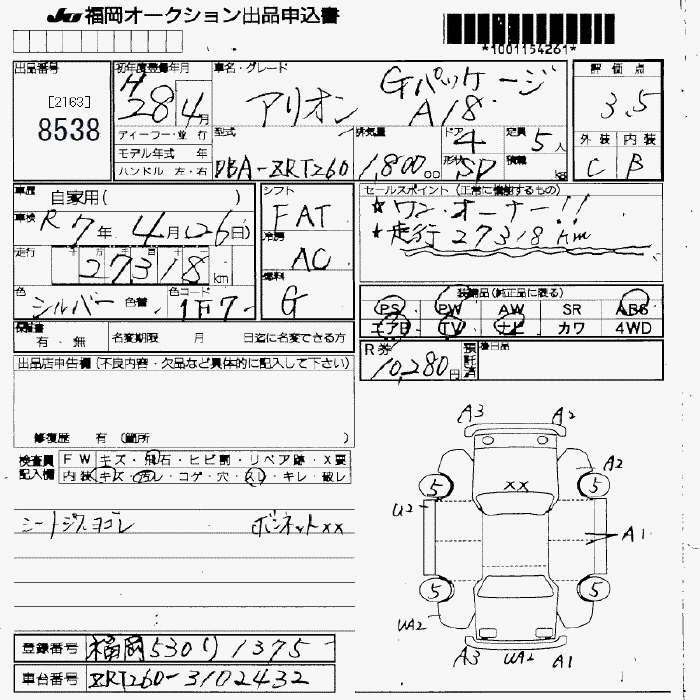 JU 福岡オークション出品申込書
*1001154261*
出品番号
[2163]
8538
初年度登録年月
H 28 4月
ディーラー・並行
モデル年式 年
ハンドル 左・右
車名・グレード
アリオン Gパッケージ A18
型式
DBA-ZRT260
排気量
1,800cc
ドア
4
形状
SD
定員
5人
積載
kg
評価点
3.5
外装 内装
C B
車歴
自家用( )
車検
R7年 4月(26日)
走行
27318 km
色
シルバー 色替
色コード
1F7
シフト
FAT
冷房
AC
燃料
G
セールスポイント(正常に機能するもの)
★ワン・オーナー!!
★走行27318km
装備品(純正品に限る)
PS PW AW SR ABS
エアB TV ナビ カワ 4WD
保証書
有・無
名変期限 月 日迄に名変できる方
R券
10,280円
預託済
後日品
出品店申告欄(不良内容・欠品など具体的に記入して下さい)
修復歴 有(箇所 )
検査員記入欄
FW キズ・飛石・ヒビ割・リペア跡・X要
内装 キズ・汚レ・コゲ・穴・スレ・キレ・破レ
シートシワヨゴレ ボンネットXX
A3 A2
A2
5 5
XX
U2
A1
5 5
UA2
A3 UA2 A1
登録番号 福岡530 り 1375
車台番号 ZRT260-3102432